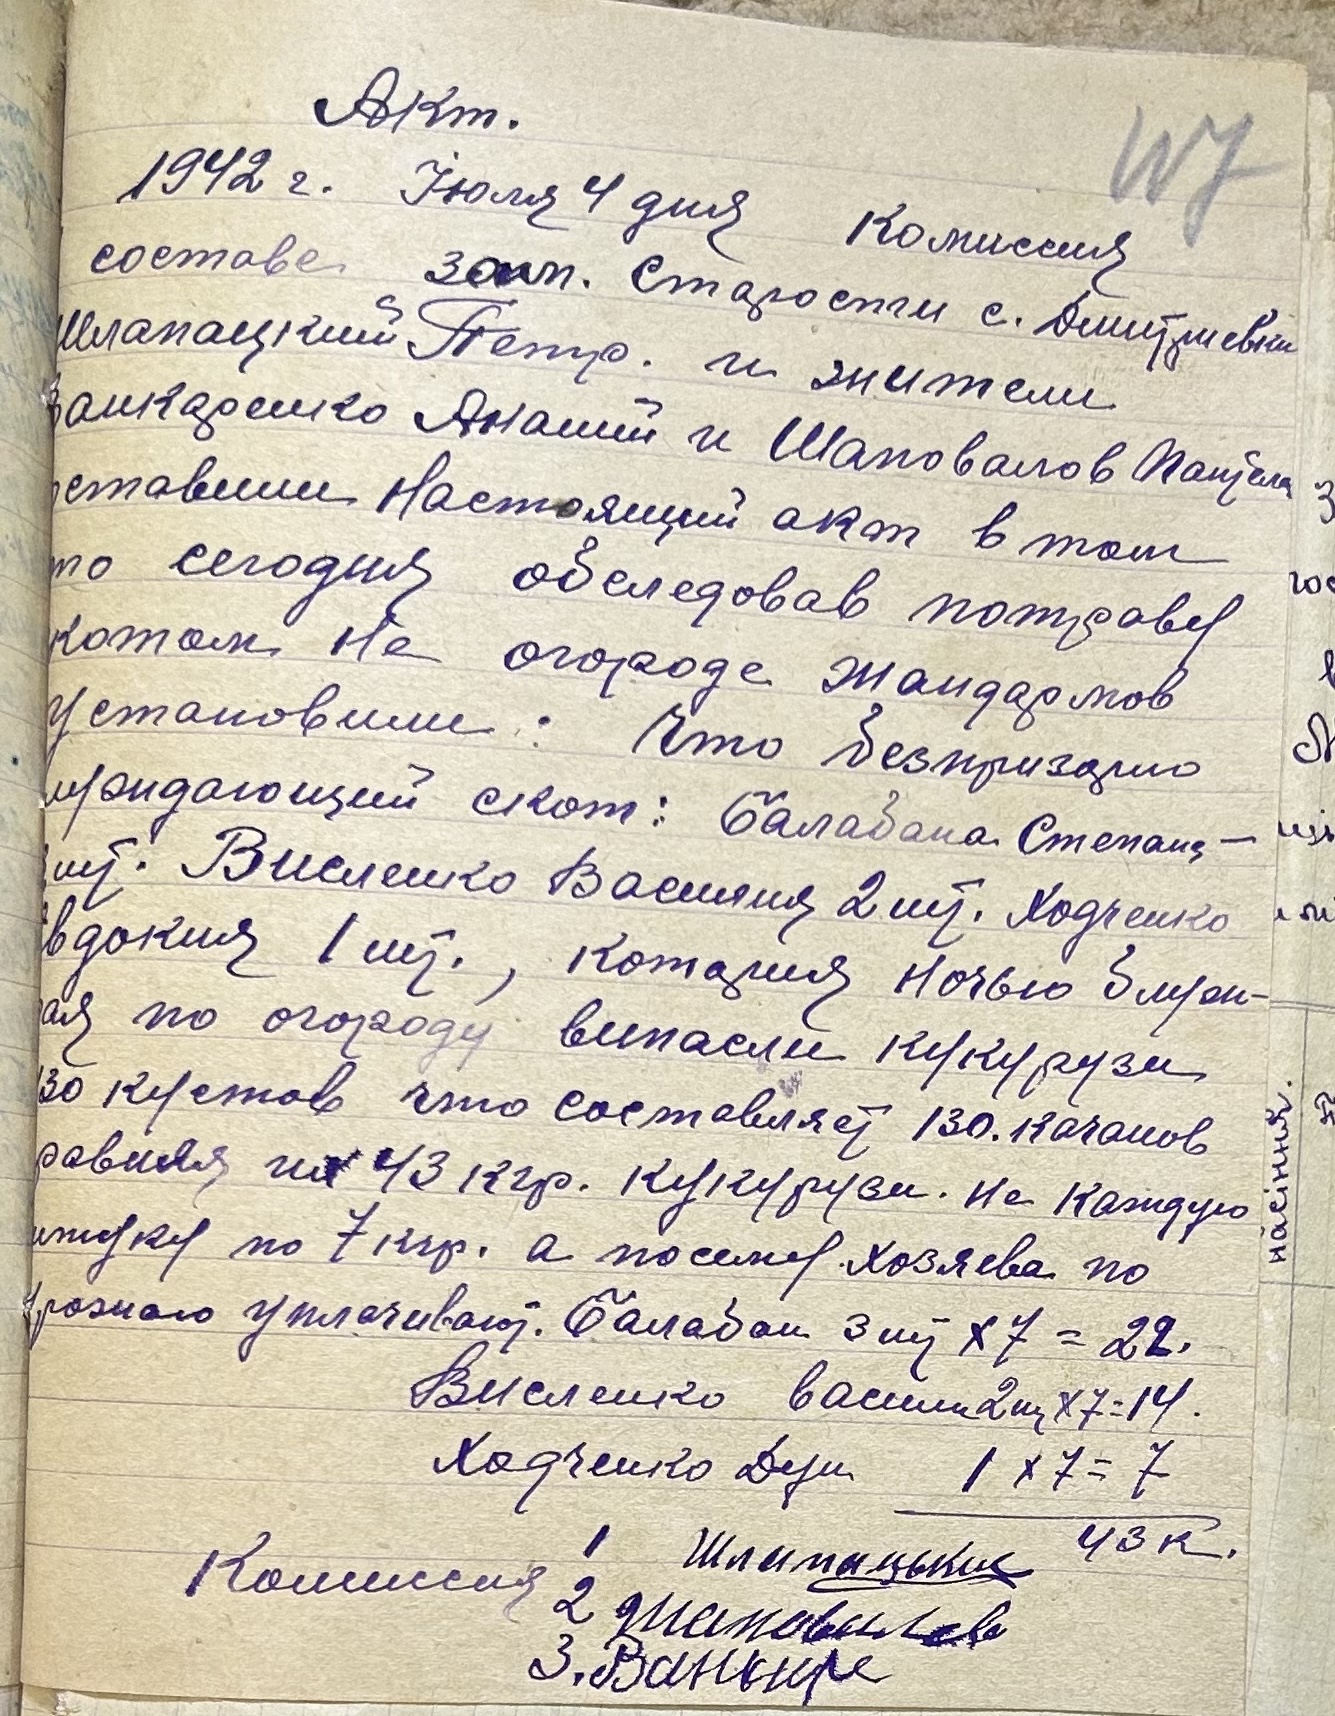 Акт.
1942 г. Июля 4 дня Комиссия
составе зам. Старости с. Дмитриевки
Шлапацкий Петр. и жители
Ванкаренко Ананий и Шаповалов Пантела
ставили настоящий акт в том
то сегодня обследовав потраву
котом на огороде жандармов
установили: Что безпризорно
луждающий скот: Балабана Степана —
шт. Висленко Василия 2 шт. Ходченко
вдокия 1 шт., котория ночью блуж-
ая по огороду випасли кукурузи
130 кустов что составляет 130. качанов
равняя 43 кгр. кукурузи. на каждую
штуку по 7 кгр. а посему хозяева по
уплачивают. Балабан 3 шт х 7 = 22.
Висленко васили 2 шт х 7 = 14.
Ходченко Дун 1 х 7 = 7
43 к.
Комиссия 1 Шлапацький
2 Шаповалов
3. Ванькаре
З
насіння.